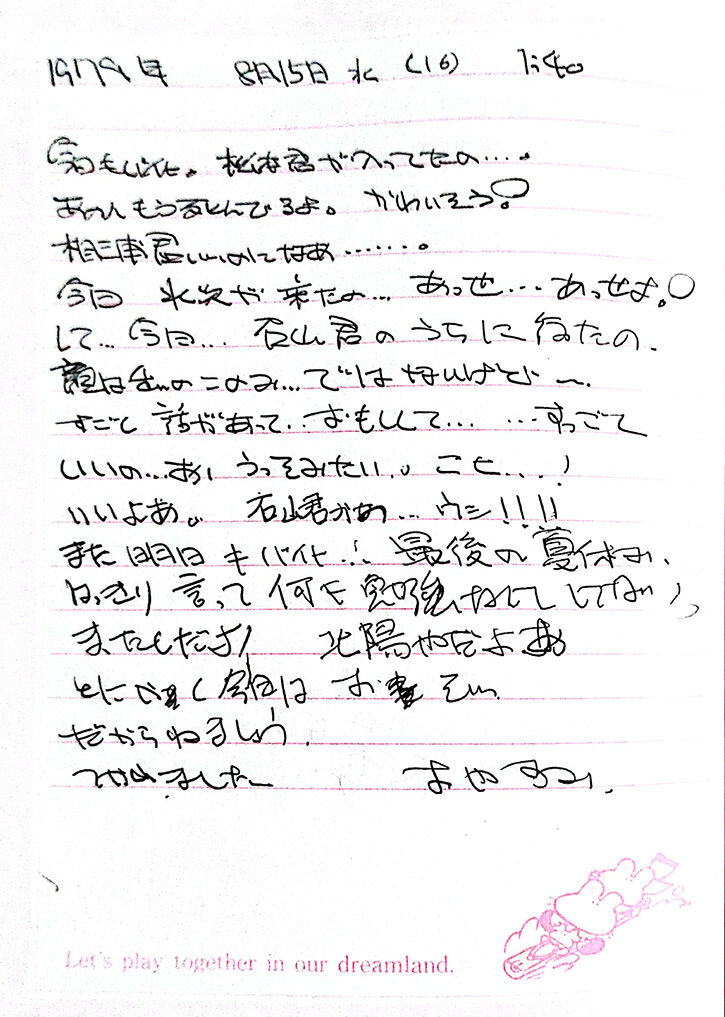 1979年 8月15日 水 (16) 1:40
今日もバイト。松本君が入ってたの….
あの人もう死んでるよ。かわいそう?
相三浦君いいのになあ…….
今日 水次が来たの… あっせ… あっせよ。
して… 今日… 石山君のうちに行たの.
顔は私のこのみ…ではないけど〜.
すごと 話があって..おもしくて… …すっごて
いいの…あ うってみたい.. こと...!
いいよあ。石山君かあ…ウシ!!!!
また明日もバイト… 最後の夏休み.
はっきり言って何も勉強 してない
またしださ! 北陽やだよあ
とにかく今日はおそい
だからねましょう.
つかれました おやすみ.
Let's play together in our dreamland.